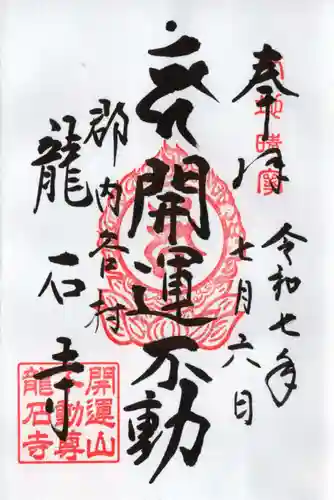 奉拝
令和七年
七月六日
開運不動
郡内各村
龍石寺
開運山
不動尊
龍石寺